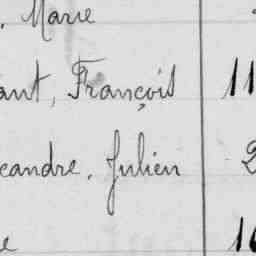 . Marie
ant, François 11
candre. Julien 2
e 16